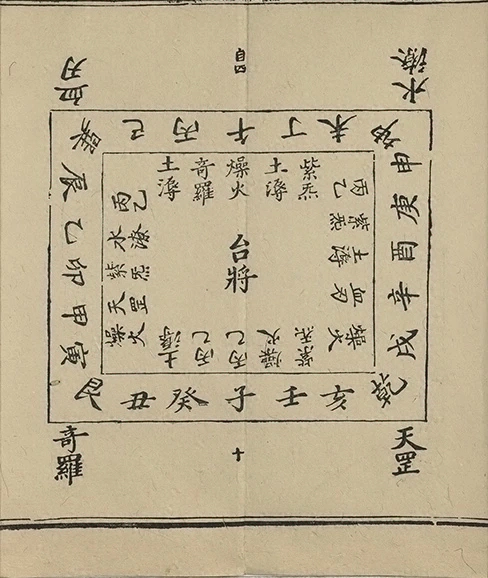 血刃
自四
水潦
巽己丙午丁未坤
辰乙卯甲寅
申庚酉辛戌
土溽
奇羅
燥火
土溽
紫炁
丙乙
水潦
紫炁
天罡
燥火
丙乙
紫炁
土溽
血刃
燥火
台將
土溽
丙乙
丙乙
燥火
紫炁
艮丑癸子壬亥乾
奇羅
十
天罡